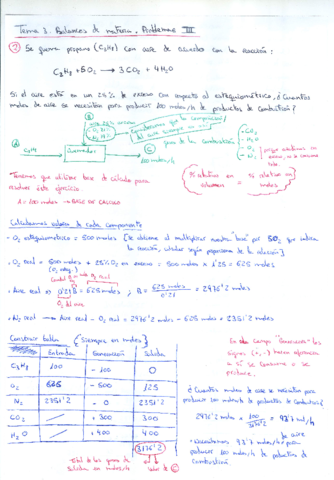 Tema 3. Balances de materia. Problemas III
② Se quema propano (C3H8) con aire de acuerdo con la reacción:
C3H8 + 5O2 → 3CO2 + 4H2O
Si el aire está en un 25% de exceso con respecto al estequiométrico, ¿Cuántos
moles de aire se necesitan para producir 100 moles/h de productos de combustión?
B
25% exceso
O2
N2
Consideramos que la composición
del aire siempre es
A
C3H8
Quemador
C
gases de la combustión
100 moles/h
CO2
H2O
O2
N2
porque estábamos en
exceso, no se consume
todo
Tenemos que utilizar base de cálculo para
resolver este ejercicio
A = 100 moles → BASE DE CÁLCULO
% relativo en
volumen
=
% relativo en
moles
Calculamos valores de cada componente
- O2 estequiométrico = 500 moles [se obtiene al multiplicar nuestra "base" por 5O2 que indica
la reacción,
proporciones de la reacción]
- O2 real = 500 moles + 25% O2 en exceso = 500 moles × 1'25 = 625 moles
(O2 esteq.)
O2 real
- Aire real ⇒ 0'21B = 625 moles ; B = 625 moles / 0'21 = 2976'2 moles
O2 del aire
- N2 real → Aire real - O2 real = 2976'2 moles - 625 moles = 2351'2 moles
Construir tabla (siempre en moles)
Entrada Generación Salida
C3H8 100 -100 0
O2 625 -500 125
N2 2351'2 - 0 2351'2
CO2 / + 300 300
H2O / + 400 400
3176'2
Total de los gases de
salida en moles/h
lado de C
En el campo "Generación" los
signos (+, -) hacen referencia
a si se consume o se
produce.
¿Cuántos moles de aire se necesitan para
producir 100 moles/h de productos de combustión?
2976'2 moles × 100 / 3176'2 = 93'7 moles/h
de aire
· Necesitamos 93'7 moles/h para
producir 100 moles/h de productos de
combustión